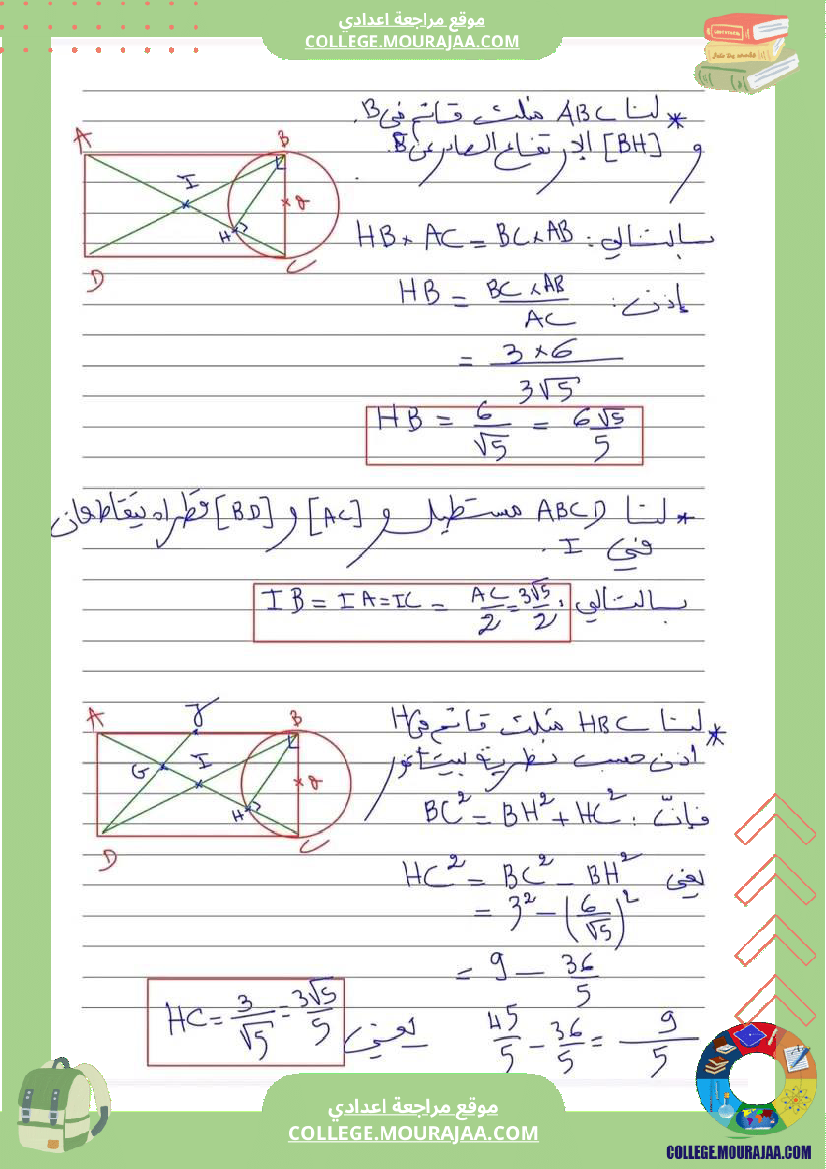 موقع مراجعة اعدادي
COLLEGE.MOURAJAA.COM
* لنا ABC مثلث قائم في B.
و [BH] الإرتفاع الصادر عن B.
A B I O H D C
بالتالي: HB × AC = BC × AB
إذن: HB = BC × AB / AC
= 3 × 6 / 3√5
HB = 6/√5 = 6√5/5
* لنا ABCD مستطيل و [AC] و [BD] قطراه يتقاطعان
في I.
بالتالي: IB = IA = IC = AC/2 = 3√5/2
* لنا HBC مثلث قائم في H
اذن حسب نظرية بيتاغور
A J B G I O H D C
فإنّ: BC² = BH² + HC²
يعني HC² = BC² - BH²
= 3² - (6/√5)²
= 9 - 36/5
45/5 - 36/5 = 9/5
يعني HC = 3/√5 = 3√5/5
موقع مراجعة اعدادي
COLLEGE.MOURAJAA.COM
COLLEGE.MOURAJAA.COM